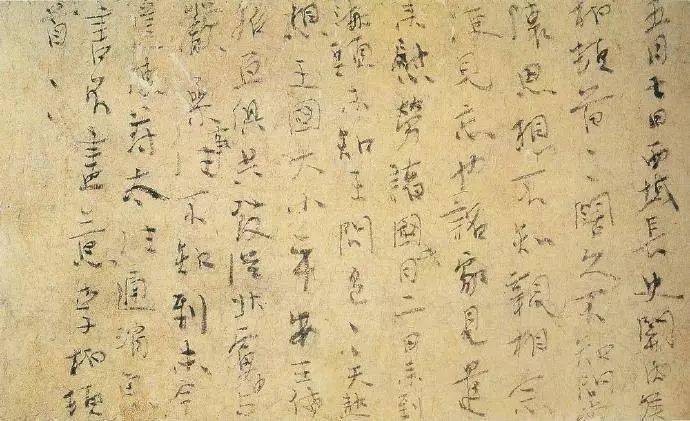 五月七日西域長史關內侯
柏頓首、、闊久不知問常
懷思想不知親相念
便見忘也詔家見遣
來慰勞諸國月二日來到
海頭未知王問邑、、天熱
想王國大小平安王使
招亘俱共發從北虜中
嚴參事往不知到未今
遣使苻太往通消息
書不盡意李柏頓
首、、